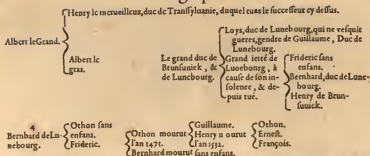 Henry le merueilleux, duc de Transsyluanie, duquel tuas le successeur cy dessus.
Albert le Grand.
Albert le
gras.
Le grand duc de
Brunsuuick, &
de Luncbourg.
Loys, duc de Lunebourg, qui ne vesquit
gueres, gendre de Guillaume, Duc de
Lunebourg.
Grand ietté de
Lunebourg, à
cause de son in-
solence, & de-
puis tué.
Frideric sans
enfans.
Bernhard, duc de Lune-
bourg.
Henry de Brun-
suuick.
4
Bernhard de Lu-
nebourg.
Othon sans
enfans.
Frideric.
Othon mourut
l'an 1471.
Bernhard mourut sans enfans.
Guillaume.
Henry mourut
l'an 1532.
Othon.
Ernest.
François.